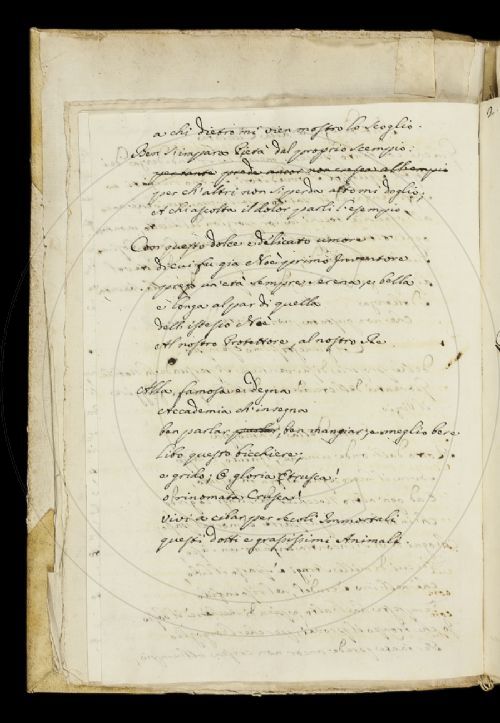 a chi dietro mi vien mostro lo scoglio.
Ben s'impara Pietà dal proprio scempio;
per ch'altri non si perda altro mi doglio;
et chi ascolta il dolor parli l'esempio.
Con questo dolce e delicato umore
di cui fu già Noè primo Inventore
prego un'età sempre serena, e bella
e longa al par di quella
dell'istesso Noè
Al nostro Protettore al nostro Re.
Alla famosa e degna
Accademia ch'insegna
ben parlar, ben mangiar, e meglio bere
libo questo bicchiere;
e grido; O gloria Etrusca!
o rinomata Crusca!
vivi a cibar per secoli Immortali
questi dotti e grassissimi Animali.
2